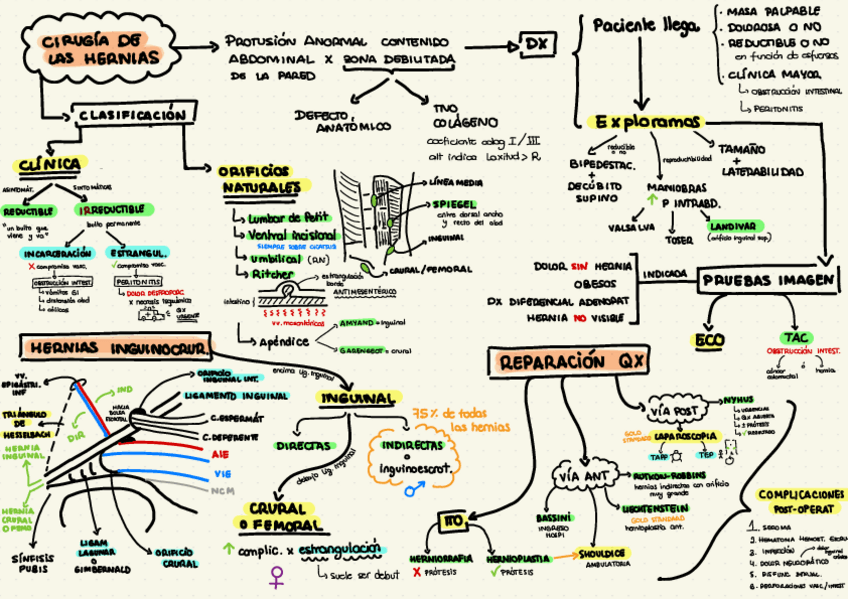 CIRUGÍA DE
LAS HERNIAS
PROTUSIÓN ANORMAL CONTENIDO
ABDOMINAL X ZONA DEBILITADA
DE LA PARED
DEFECTO
ANATÓMICO
TNO
COLÁGENO
coeficiente colag I / III
alt indica Laxitud > R
DX
Paciente llega
• MASA PALPABLE
• DOLOROSA O NO
• REDUCTIBLE O NO
en función de esfuerzos
• CLÍNICA MAYOR
OBSTRUCCIÓN INTESTINAL
PERITONITIS
Exploramos
reducible
o no
BIPEDESTAC.
+
DECÚBITO
SUPINO
reproducibilidad
MANIOBRAS
↑ P INTRABD.
VALSALVA
TOSER
LANDIVAR
(orificio inguinal sup.)
TAMAÑO
+
LATERABILIDAD
PRUEBAS IMAGEN
INDICADA
DOLOR SIN HERNIA
OBESOS
DX DIFERENCIAL ADENOPAT
HERNIA NO VISIBLE
ECO
TAC
OBSTRUCCIÓN INTEST.
cáncer
colorrectal
ó
hernia
CLASIFICACIÓN
CLÍNICA
ASINTOMÁT.
SINTOMÁTICAS
REDUCTIBLE
"un bulto que
viene y va"
IRREDUCTIBLE
bulto permanente
INCARCERACIÓN
X compromiso vasc.
OBSTRUCCIÓN INTEST.
vómitos GI
distensión abd
cólicos
ESTRANGUL.
✓ compromiso vasc.
PERITONITIS
DOLOR DESPROPORC
x necrosis isquémica
QX
URGENTE
ORIFICIOS
NATURALES
Lumbar de Petit
Ventral incisional
SIEMPRE SOBRE CICATRIZ
umbilical (RN)
Ritcher
estrangulación
borde
ANTIMESENTÉRICO
intestino
vv. mesentéricos
Apéndice
AMYAND = inguinal
GARENGEOT = crural
LÍNEA MEDIA
SPIEGEL
entre dorsal ancho
y recto del abd
INGUINAL
CRURAL / FEMORAL
HERNIAS INGUINOCRUR.
VV.
EPIGÁSTRI.
INF
TRIÁNGULO
DE
HESSELBACH
HERNIA
INGUINAL
HERNIA
CRURAL
IND
DIR
HACIA
BOLSA
ESCROTAL
ORIFICIO
INGUINAL INT.
LIGAMENTO INGUINAL
C.ESPERMÁT
C.DEFERENTE
AIE
VIE
NCM
SÍNFISIS
PUBIS
LIGAM
LAGUNAR
O
GIMBERNALD
ORIFICIO
CRURAL
encima lig. inguinal
INGUINAL
DIRECTAS
INDIRECTAS
o
inguinoescrot.
75% de todas
las hernias
debajo lig. inguinal
CRURAL
O FEMORAL
↑ complic. x estrangulación
suele ser debut
REPARACIÓN QX
TTO
HERNIORRAFIA
X PRÓTESIS
HERNIOPLASTIA
✓ PRÓTESIS
VÍA ANT
BASSINI
INGRESO
HOSPI
SHOULDICE
AMBULATORIA
LICHTENSTEIN
GOLD STANDARD
hernioplastia ant.
RUTKOW-ROBBINS
hernias indirectas con orificio
muy grande
VÍA POST
NYHUS
URGENCIAS
QX ABIERTA
± PRÓTESIS
GOLD
STANDARD
LAPAROSCOPIA
TAPP
TEP
COMPLICACIONES
POST-OPERAT
1. SEROMA
2. HEMATOMA HEMOST.
3. INFECCIÓN
4. DOLOR NEUROPÁTICO
6. PERFORACIONES VASC/INTEST